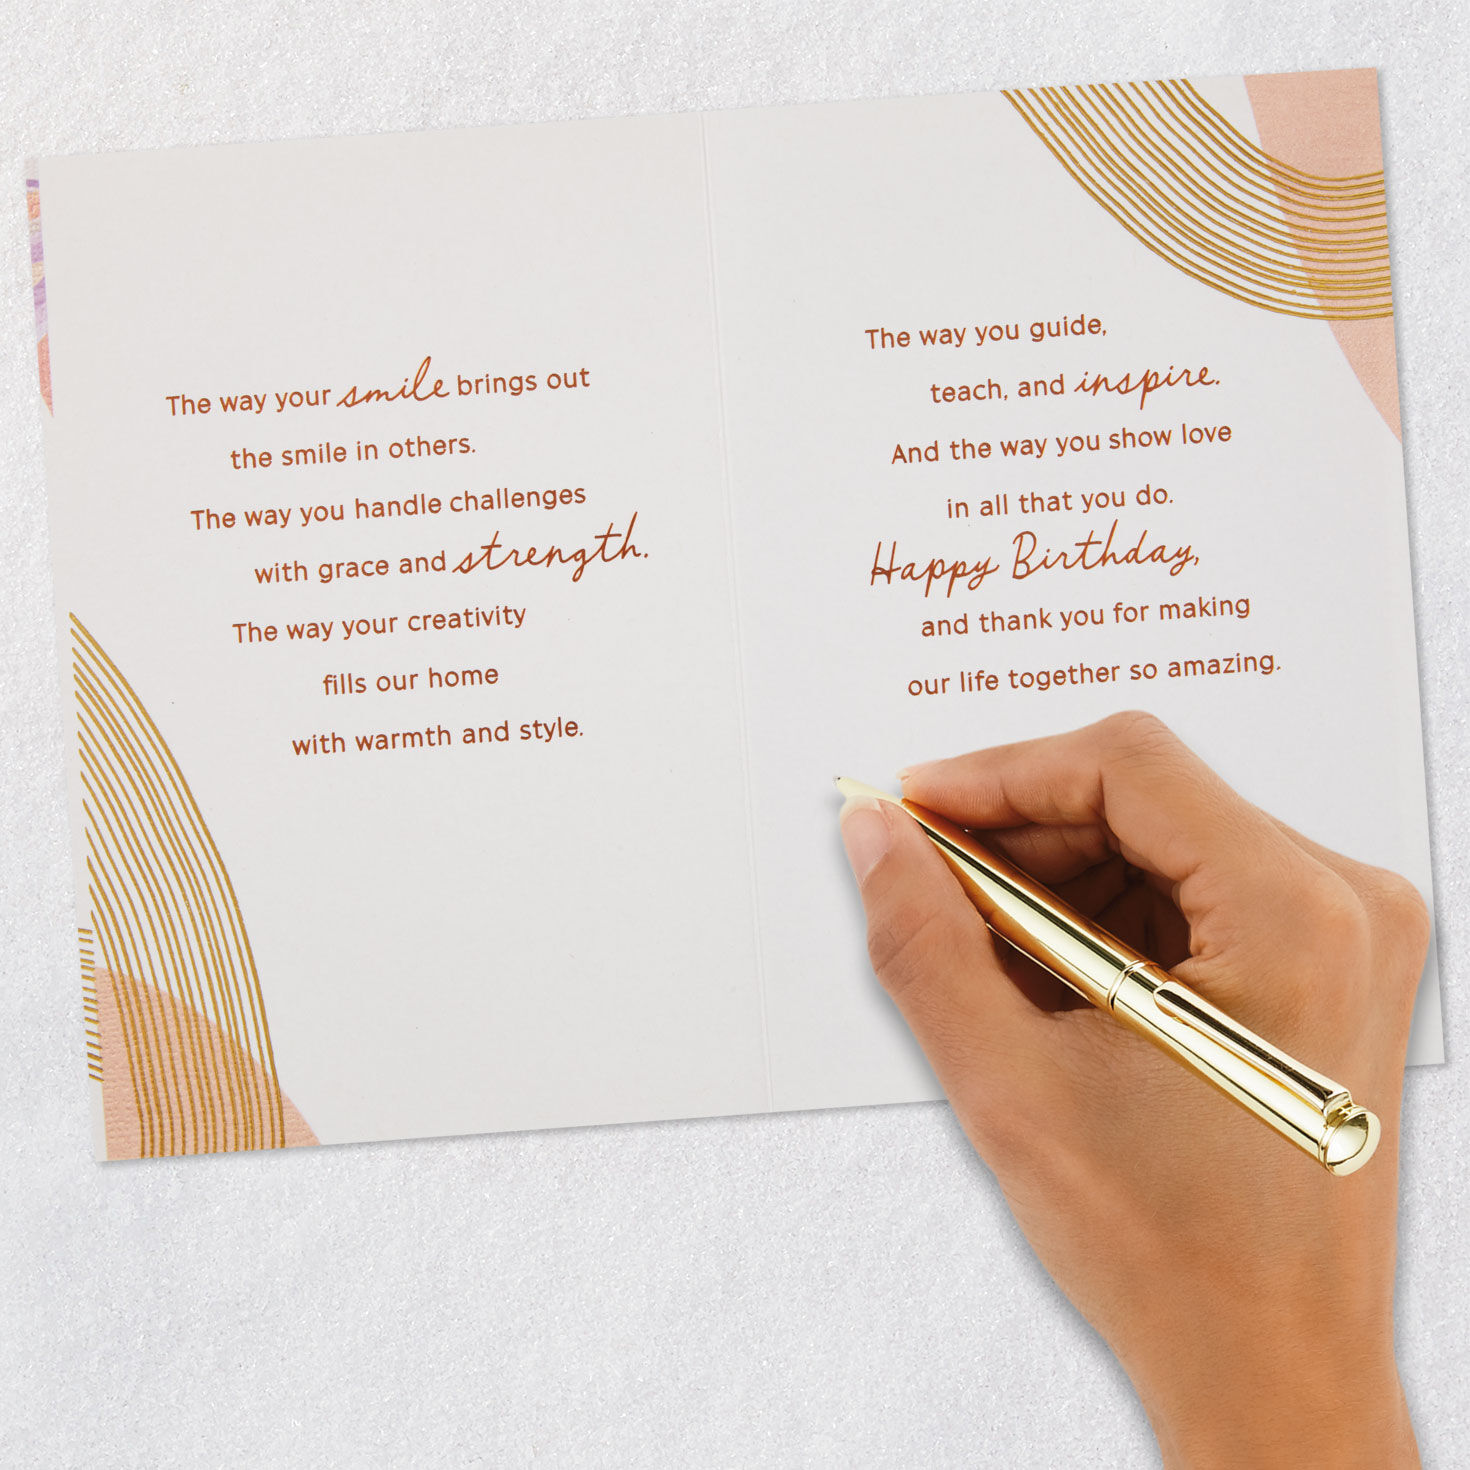 The way your smile brings out
the smile in others.
The way you handle challenges
with grace and strength.
The way your creativity
fills our home
with warmth and style.
The way you guide,
teach, and inspire.
And the way you show love
in all that you do.
Happy Birthday,
and thank you for making
our life together so amazing.